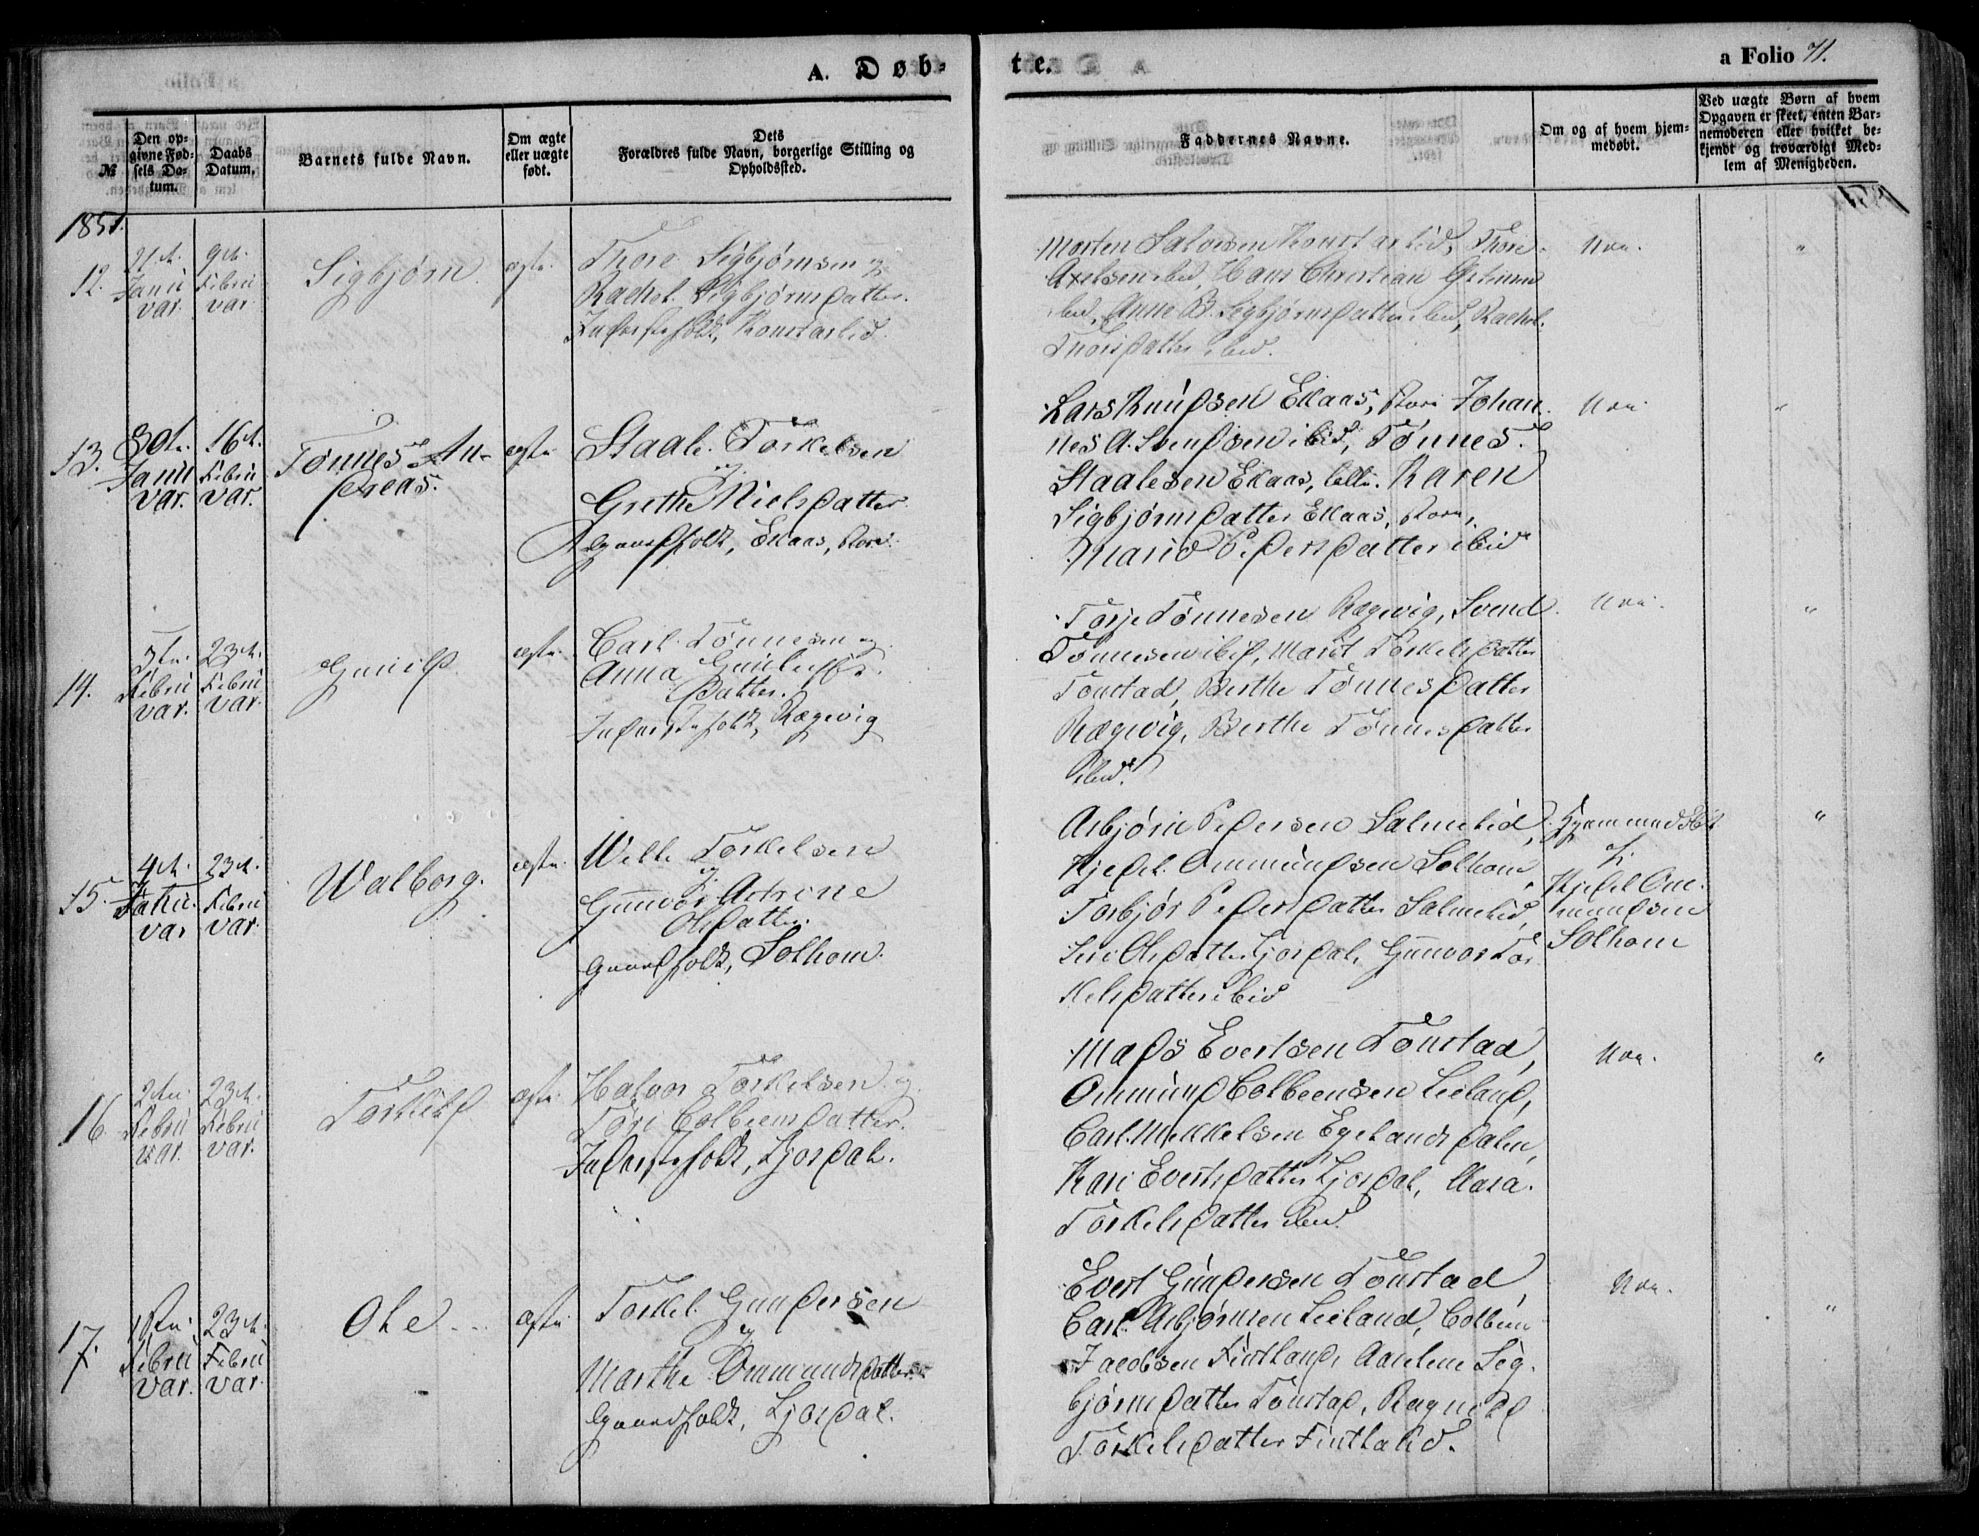 A. Døb-
te.
a Folio 71.
№
Den op-
givne Fød-
sels Da-
tum.
Daabs
Datum.
Barnets fulde Navn.
Om ægte
eller uægte
født.
Dets
Forældres fulde Navn, borgerlige Stilling og
Opholdssted.
Faddernes Navne.
Om og af hvem hjem-
medøbt.
Ved uægte Børn af hvem
Opgaven er skeet, enten Bar-
nemoderen eller hvilket be-
kjendt og troværdigt Med-
lem af Menigheden.
1851.
12.
21de
Janu
var.
9de
Febru
var
Sigbjørn.
ægte.
Thore Sigbjørnsen og
Rachel Sigbjørnsdatter.
Inderstefolk, Konstarlid.
Morten Salvesen Konstarlid, Thore
Axelsen ibid, Hans Christian
ibid, Anne B. Sigbjørnsdatter ibid, Rachel
Thorsdatter ibid.
"
13.
30te
Janu
var.
16de
Febru
var.
Tønnes An-
dreas.
ægte
Staale Torkelsen
og
Grethe Nielsdatter
Gaardfolk, Eikaas, store.
Lars Knudsen Eikaas, store Johan-
nes A. Svendsen ibid, Tønnes
Staalesen Eikaas, lille. Karen
Sigbjørnsdatter Eikaas, store,
Maria Pedersdatter ibid
"
14.
5te
Febru
var.
23de
Febru
var.
Gunild
ægte
Carl Tønnesen og
Anna Gunlufs-
datter.
Inderstefolk, Rægevig
Torje Tønnesen Rægevig, Svend
Tønnesen ibid, Maret Torkelsdatter
Tonstad, Berthe Tønnesdatter
Rægevig, Berthe Tønnesdatter
ibid.
"
15.
4de
Janu
var
23de
Febru
var.
Walborg.
ægte
Torkelsen
og
Gunvor Astrine
Olsdatter.
Gaardfolk, Solhom.
Asbjørn Pedersen Salmelid,
Kjedel Ommundsen Solhom,
Torbjør Pedersdatter Salmelid,
Siri Olsdatter Ljosdal, Gunvor Tor-
kelsdatter ibid
Hjemmedøbt
Kjedel Om-
mundsen
Solhom
"
16.
2den
Febru
var.
23de
Febru
var.
Torkild
ægte
Halvor Torkelsen og
Tori Colbeensdatter.
Inderstefolk, Ljosdal.
Mads Evertsen Tonstad,
Ommund Colbeensen Leeland,
Carl Mikkelsen Egelandsdalen,
Kari Evertsdatter Ljosdal,
Torkelsdatter ibid
"
17.
Febru
var.
23de
Febru
var.
Ole
ægte
Torkel Gundersen
og
Marthe Ommundsdatter.
Gaardfolk, Ljosdal.
Evert Gundersen Tonstad,
Carl Asbjørnsen Leeland, Colbeen
Jacobsen Fintland, Aselene Sig-
bjørnsdatter Tonstad, Ragnild
Torkelsdatter Fintland.
"